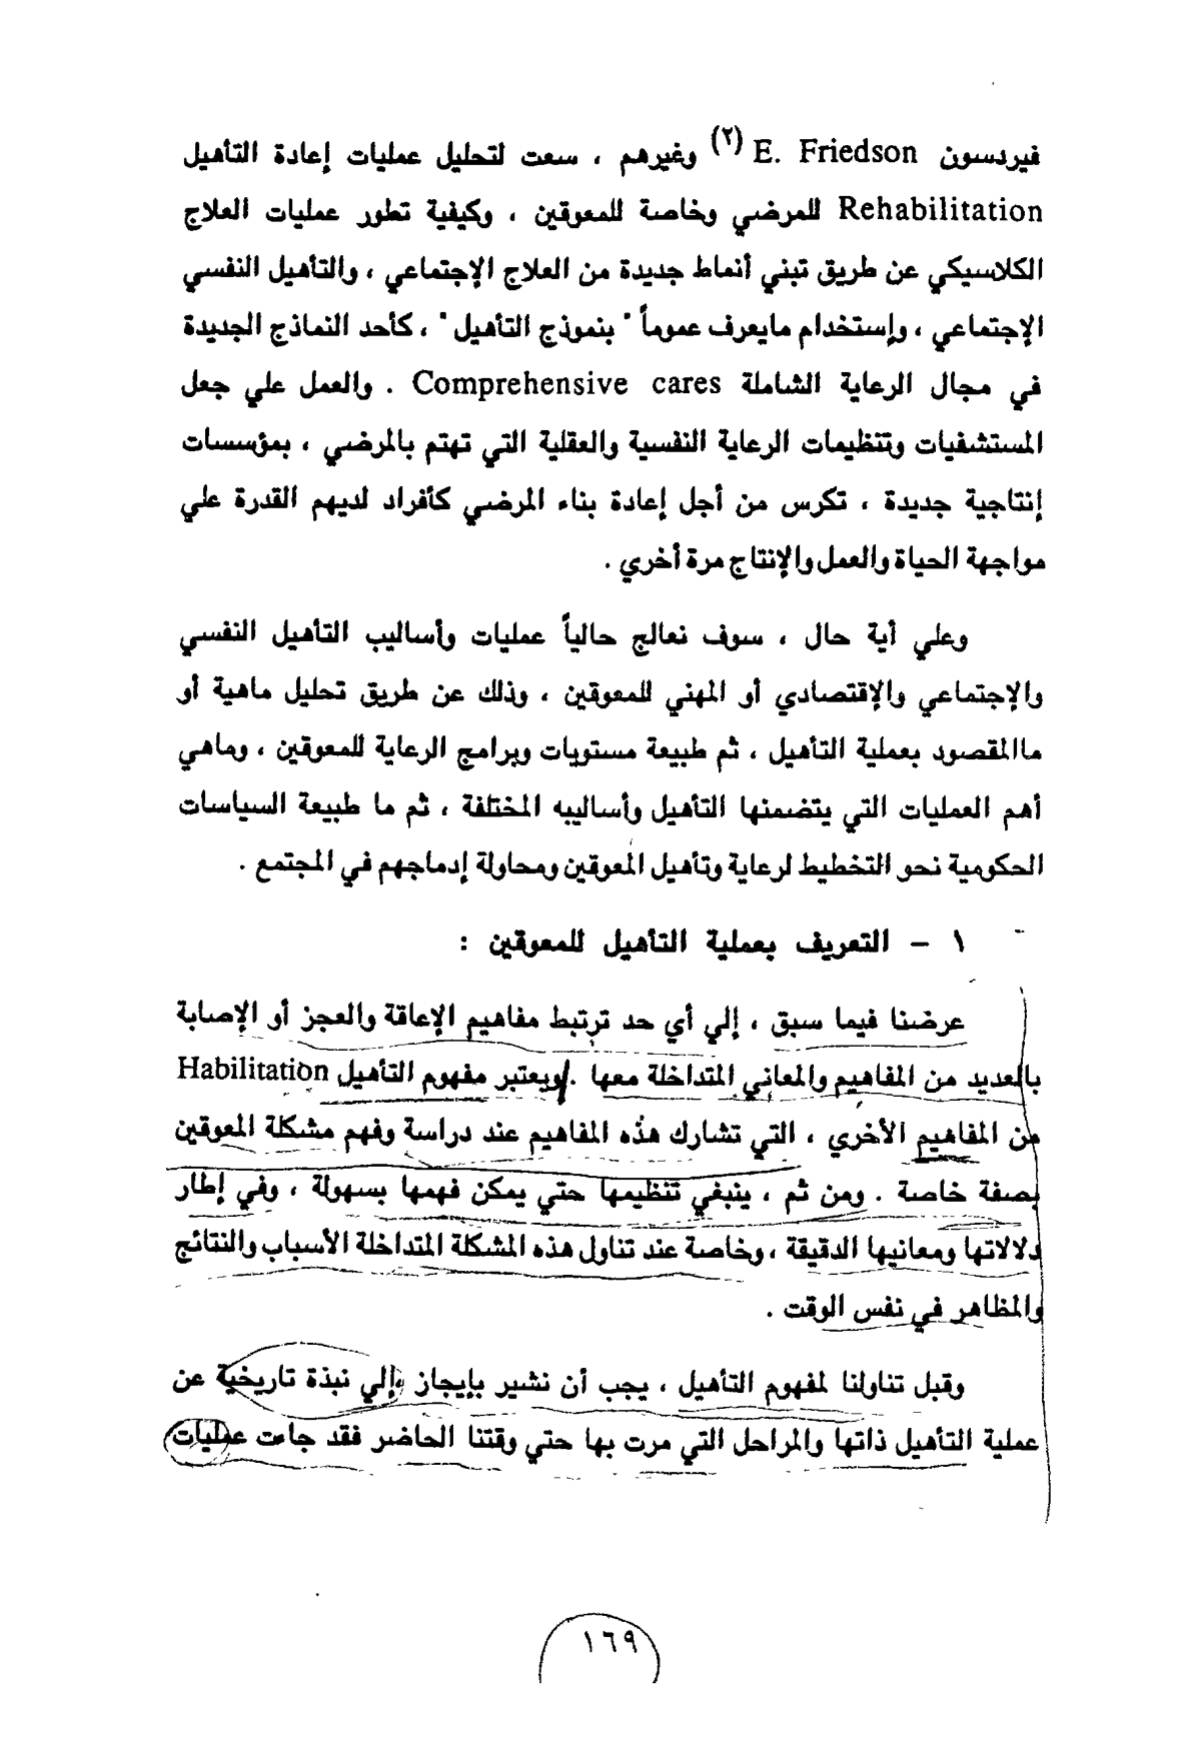 فيردسون E. Friedson (٢) وغيرهم ، سعت لتحليل عمليات إعادة التأهيل
Rehabilitation للمرضي وخاصة للمعوقين ، وكيفية تطور عمليات العلاج
الكلاسيكي عن طريق تبني أنماط جديدة من العلاج الإجتماعي ، والتأهيل النفسي
الإجتماعي ، وإستخدام مايعرف عموماً " بنموذج التأهيل " ، كأحد النماذج الجديدة
في مجال الرعاية الشاملة Comprehensive cares . والعمل علي جعل
المستشفيات وتنظيمات الرعاية النفسية والعقلية التي تهتم بالمرضي ، بمؤسسات
إنتاجية جديدة ، تكرس من أجل إعادة بناء المرضي كأفراد لديهم القدرة علي
مواجهة الحياة والعمل والإنتاج مرة أخري .
وعلي أية حال ، سوف نعالج حالياً عمليات وأساليب التأهيل النفسي
والإجتماعي والإقتصادي أو المهني للمعوقين ، وذلك عن طريق تحليل ماهية أو
ماالمقصود بعملية التأهيل ، ثم طبيعة مستويات وبرامج الرعاية للمعوقين ، وماهي
أهم العمليات التي يتضمنها التأهيل وأساليبه المختلفة ، ثم ما طبيعة السياسات
الحكومية نحو التخطيط لرعاية وتأهيل المعوقين ومحاولة إدماجهم في المجتمع .
١ - التعريف بعملية التأهيل للمعوقين :
عرضنا فيما سبق ، إلي أي حد ترتبط مفاهيم الإعاقة والعجز أو الإصابة
بالعديد من المفاهيم والمعاني المتداخلة معها . ويعتبر مفهوم التأهيل Habilitation
من المفاهيم الأخري ، التي تشارك هذه المفاهيم عند دراسة وفهم مشكلة المعوقين
بصفة خاصة . ومن ثم ، ينبغي تنظيمها حتي يمكن فهمها بسهولة ، وفي إطار
دلالاتها ومعانيها الدقيقة ، وخاصة عند تناول هذه المشكلة المتداخلة الأسباب والنتائج
والمظاهر في نفس الوقت .
وقبل تناولنا لمفهوم التأهيل ، يجب أن نشير بإيجاز إلي نبذة تاريخية عن
عملية التأهيل ذاتها والمراحل التي مرت بها حتي وقتنا الحاضر فقد جاءت عمليات
١٦٩